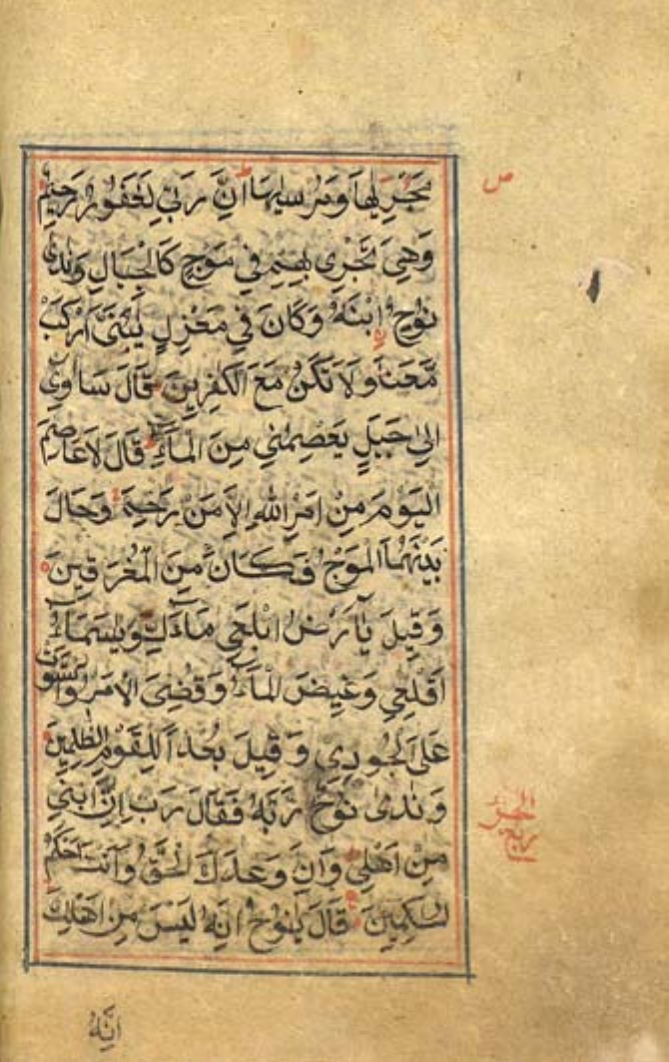 مَجْرٖىهَا وَمُرْسٰىهَا اِنَّ رَبِّي لَغَفُورٌ رَحِيمٌ
ص
وَهِيَ تَجْرِي بِهِمْ فِي مَوْجٍ كَالْجِبَالِ وَنَادٰى
نُوحٌ ابْنَهُ وَكَانَ فِي مَعْزِلٍ يٰبُنَيَّ ارْكَبْ
مَّعَنَا وَلَا تَكُنْ مَعَ الْكٰفِرِينَ قَالَ سَاٰوِي
اِلٰى جَبَلٍ يَعْصِمُنِي مِنَ الْمَاءِ قَالَ لَا عَاصِمَ
الْيَوْمَ مِنْ اَمْرِ اللّٰهِ اِلَّا مَنْ رَحِمَ وَحَالَ
بَيْنَهُمَا الْمَوْجُ فَكَانَ مِنَ الْمُغْرَقِينَ
وَقِيلَ يٰٓاَرْضُ ابْلَعِي مَآءَكِ وَيٰسَمَآءُ
اَقْلِعِي وَغِيضَ الْمَآءُ وَقُضِيَ الْاَمْرُ وَاسْتَوَتْ
عَلَى الْجُودِيِّ وَقِيلَ بُعْدًا لِلْقَوْمِ الظّٰلِمِينَ
وَنَادٰى نُوحٌ رَبَّهُ فَقَالَ رَبِّ اِنَّ ابْنِي
مِنْ اَهْلِي وَاِنَّ وَعْدَكَ الْحَقُّ وَاَنْتَ اَحْكَمُ
الْحٰكِمِينَ قَالَ يٰنُوحُ اِنَّهُ لَيْسَ مِنْ اَهْلِكَ
اِنَّهُ